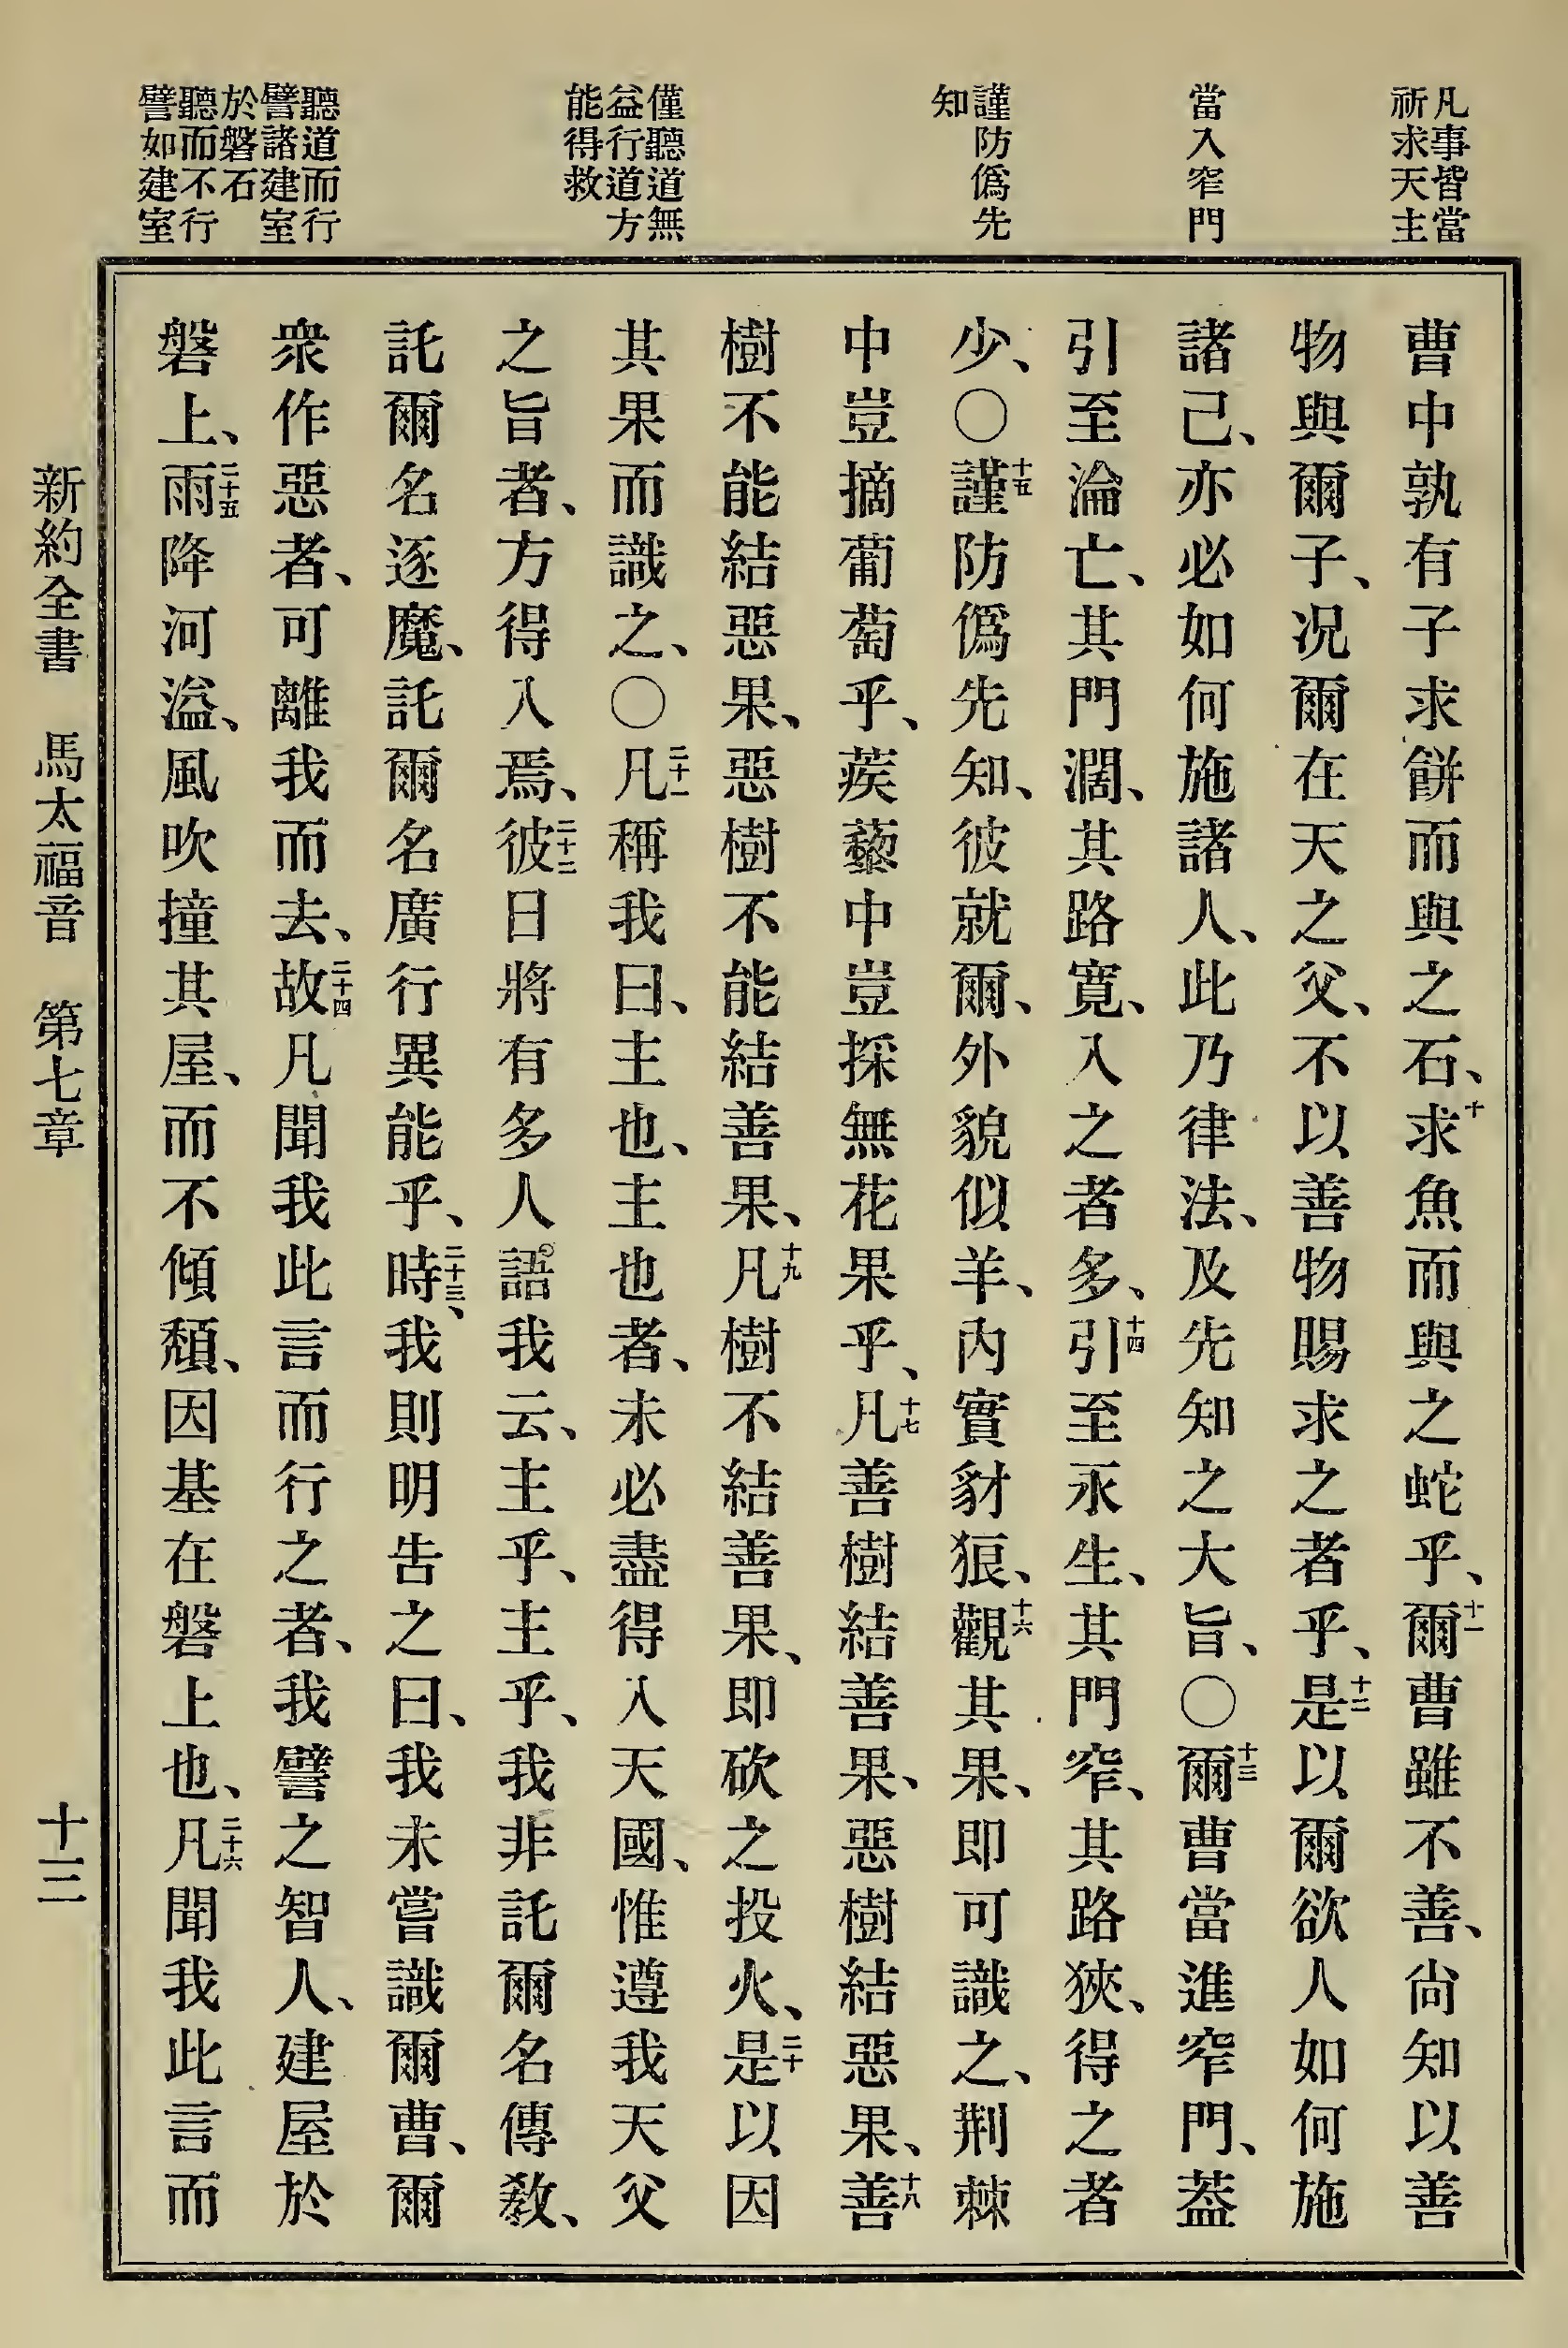 凡事皆當
祈求天主
當入窄門
謹防僞先
知
僅聽道無
益行道方
能得救
聽道而行
譬諸建室
於磐石
聽而不行
譬如建室
曹中孰有子求餅而與之石、十求魚而與之蛇乎、十一爾曹雖不善、尙知以善
物與爾子、况爾在天之父、不以善物賜求之者乎、十二是以爾欲人如何施
諸己、亦必如何施諸人、此乃律法、及先知之大旨、〇十三爾曹當進窄門、葢
引至淪亡、其門濶、其路寬、入之者多、十四引至永生、其門窄、其路狹、得之者
少、〇十五謹防僞先知、彼就爾、外貌似羊、內實豺狼、十六觀其果、即可識之、荆棘
中豈摘葡萄乎、蒺藜中豈採無花果乎、十七凡善樹結善果、惡樹結惡果、十八善
樹不能結惡果、惡樹不能結善果、十九凡樹不結善果、即砍之投火、二十是以因
其果而識之、〇二十一凡稱我曰、主也、主也者、未必盡得入天國、惟遵我天父
之旨者、方得入焉、二十二彼日將有多人語我云、主乎、主乎、我非託爾名傳敎、
託爾名逐魔、託爾名廣行異能乎、二十三、時我則明吿之曰、我未嘗識爾曹、爾
衆作惡者、可離我而去、二十四故凡聞我此言而行之者、我譬之智人、建屋於
磐上、二十五雨降河溢、風吹撞其屋、而不傾頹、因基在磐上也、二十六凡聞我此言而
新約全書 馬太福音 第七章 十三